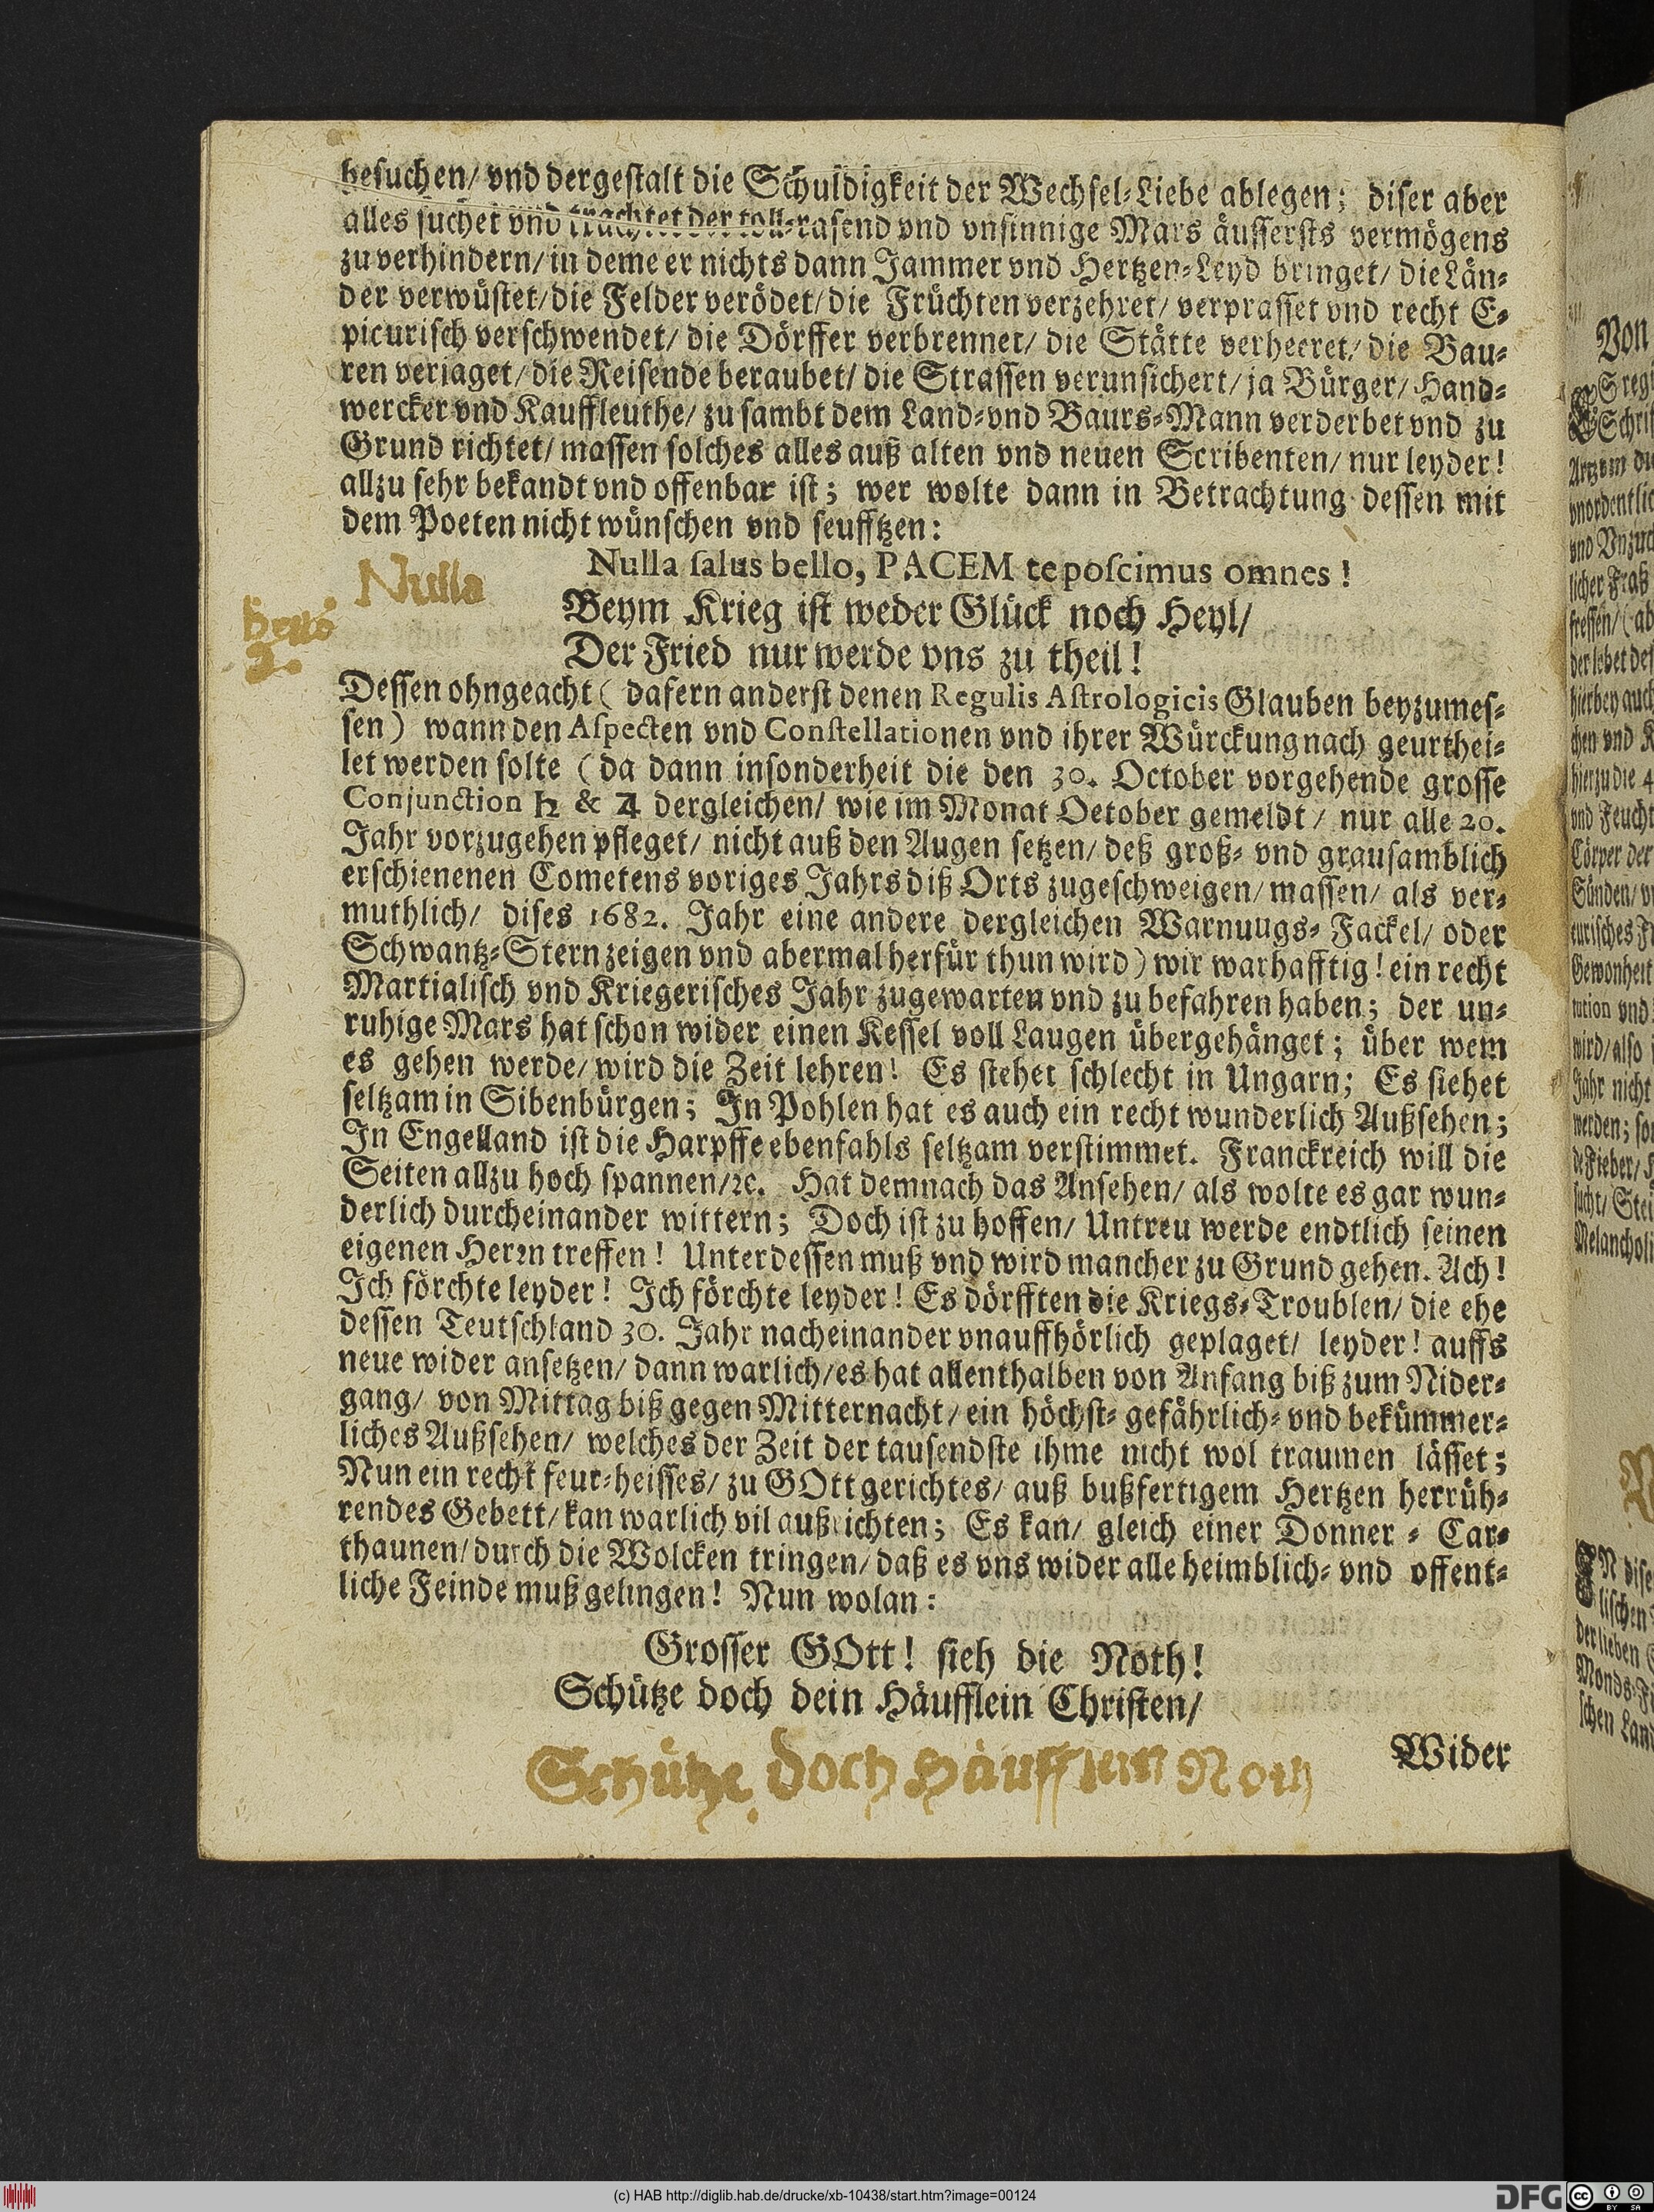 besuchen/ vnd dergestalt die Schuldigkeit der Wechsel-Liebe ablegen; diser aber
alles suchet vnd trachtet der toll-rasend vnd vnsinnige Mars äussersts vermögens
zu verhindern/ in deme er nichts dann Jammer vnd Hertzen-Leyd bringet/ die Län-
der verwüstet/ die Felder verödet/ die Früchten verzehret/ verprasset vnd recht E-
picurisch verschwendet/ die Dörffer verbrennet/ die Stätte verheeret/ die Bau-
ren verjaget/ die Reisende beraubet/ die Strassen verunsichert/ ja Bürger/ Hand-
wercker vnd Kauffleuthe/ zu sambt dem Land- vnd Baurs-Mann verderbet vnd zu
Grund richtet/ massen solches alles auß alten vnd neuen Scribenten/ nur leyder!
allzu sehr bekandt vnd offenbar ist; wer wolte dann in Betrachtung dessen mit
dem Poeten nicht wünschen vnd seufftzen:
Nulla salus bello, PACEM te poscimus omnes!
Nulla
Beym Krieg ist weder Glück noch Heyl/
bello
Der Fried nur werde vns zu theil!
2.
Dessen ohngeacht ( dafern anderst denen Regulis Astrologicis Glauben beyzumes-
sen ) wann den Aspecten vnd Constellationen vnd ihrer Würckung nach geurthei-
let werden solte ( da dann insonderheit die den 30. October vorgehende grosse
Conjunction ♄ & ♃ dergleichen/ wie im Monat Oetober gemeldt/ nur alle 20.
Jahr vorzugehen pfleget/ nicht auß den Augen setzen/ deß groß- vnd grausamblich
erschienenen Cometens voriges Jahrs diß Orts zugeschweigen/ massen/ als ver-
muthlich/ dises 1682. Jahr eine andere dergleichen Warnuugs- Fackel/ oder
Schwantz-Stern zeigen vnd abermal herfür thun wird ) wir warhafftig! ein recht
Martialisch vnd Kriegerisches Jahr zugewarten vnd zu befahren haben; der un-
ruhige Mars hat schon wider einen Kessel voll Laugen übergehänget; über wem
es gehen werde/ wird die Zeit lehren! Es stehet schlecht in Ungarn; Es siehet
seltzam in Sibenbürgen; In Pohlen hat es auch ein recht wunderlich Außsehen;
In Engelland ist die Harpffe ebenfahls seltzam verstimmet. Franckreich will die
Seiten allzu hoch spannen/ ꝛc. Hat demnach das Ansehen/ als wolte es gar wun-
derlich durcheinander wittern; Doch ist zu hoffen/ Untreu werde endtlich seinen
eigenen Herꝛn treffen! Unterdessen muß vnd wird mancher zu Grund gehen. Ach!
Ich förchte leyder! Ich förchte leyder! Es dörfften die Kriegs-Troublen/ die ehe
dessen Teutschland 30. Jahr nacheinander vnauffhörlich geplaget/ leyder! auffs
neue wider ansetzen/ dann warlich/ es hat allenthalben von Anfang biß zum Nider-
gang/ von Mittag biß gegen Mitternacht/ ein höchst- gefährlich- vnd bekümmer-
liches Außsehen/ welches der Zeit der tausendste ihme nicht wol traumen lässet;
Nun ein recht feur-heisses/ zu GOtt gerichtes/ auß bußfertigem Hertzen herrüh-
rendes Gebett/ kan warlich vil außrichten; Es kan/ gleich einer Donner - Car-
thaunen/ durch die Wolcken tringen/ daß es vns wider alle heimblich- vnd offent-
liche Feinde muß gelingen! Nun wolan:
Grosser GOtt! sieh die Noth!
Schütze doch dein Häufflein Christen/
Wider
Schütze doch Häufflein Noth
Von
ES regi
Schrif
vnordentlic
licher Fraß
hierbey auch
hierzu die 4
vnd Feucht
Cörper der
Gewonheit
wird/ also
Jahr nicht
werden; so
de Fieber/
sucht/ Stei
Melancholi
IN dise
lischen
der lieben
Monds-Fi
schen Land
(c) HAB http://diglib.hab.de/drucke/xb-10438/start.htm?image=00124
DFG
cc BY SA